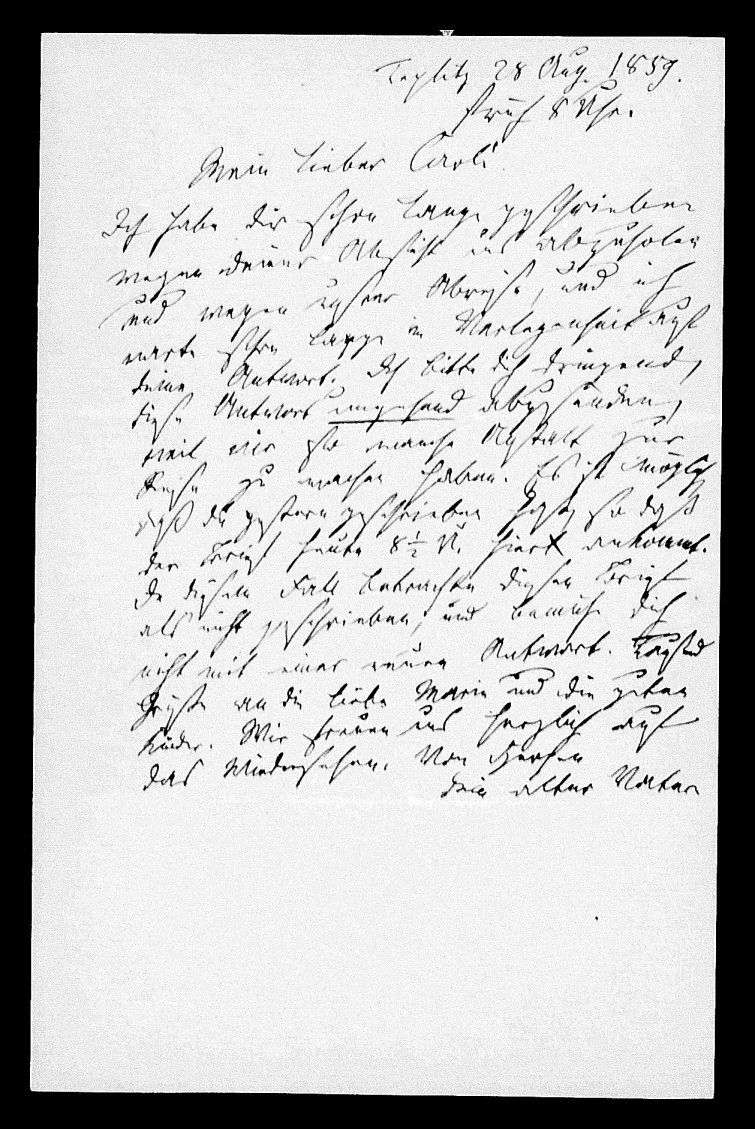 Teplitz 28 Aug. 1859.
früh 8 Uhr.
Mein lieber Carli
Ich habe dir schon lange geschrieben
wegen deiner Absicht uns abzuholen
und wegen unsrer Abreise, und ich
warte schon lange in Verlegenheit auf
deine Antwort. Ich bitte dich dringend,
diese Antwort umgehend abzusenden,
weil wir so manche Anstalt zur
Reise zu machen haben. Es ist möglich
daß du gestern geschrieben hast, so daß
der Brief heute 8 ½ U. hier ankommt.
In diesem Fall betrachte diesen Brief
als nicht geschrieben, und bemühe dich
nicht mit einer neuen Antwort. Tausend
Grüße an die liebe Marie und die guten
Kinder. Wir freuen uns herzlich auf
das Wiedersehen. Von Herzen
dein alter Vater